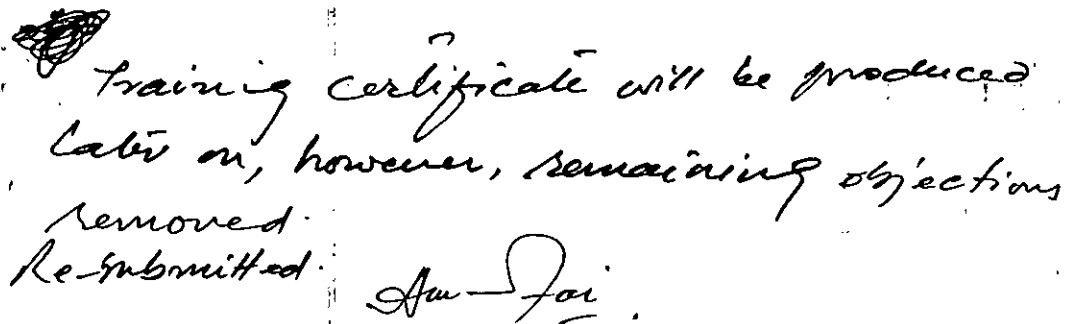 Training certificate will be produced
later on, however, remaining objections
removed.
Re-submitted.